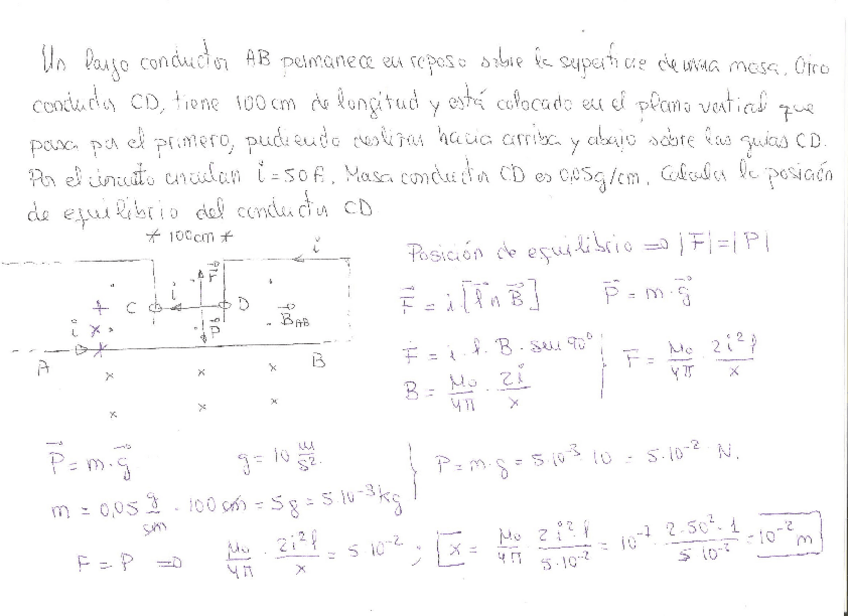 Un largo conductor AB permanece en reposo sobre la superficie de una mesa. Otro
conductor CD, tiene 100 cm de longitud y está colocado en el plano vertical que
pasa por el primero, pudiendo deslizar hacia arriba y abajo sobre las guías CD.
Por el circuito circulan i = 50A. Masa conductor CD es 0,05g/cm. Calcular la posición
de equilibrio del conductor CD
100cm
i
C i D F
P B_AB
i
A B
Posición de equilibrio ⇒ |F| = |P|
F = i·[l ∧ B] P = m·g
F = i·l·B·sen 90°
B = μ₀/4π · 2i/x
F = μ₀/4π · 2i²l/x
P = m·g g = 10 m/s².
m = 0,05 g/cm · 100 cm = 5g = 5 10⁻³ kg
P = m·g = 5·10⁻³·10 = 5·10⁻² N.
F = P ⇒ μ₀/4π · 2i²l/x = 5 10⁻² ; x = μ₀/4π · 2i²·l/5·10⁻² = 10⁻⁷ · 2·50²·1/5 10⁻² = 10⁻² m